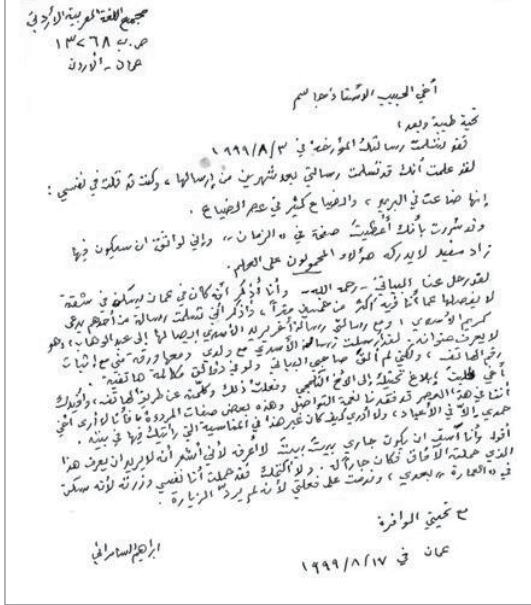 مجمع اللغة العربية الأردني
ص.ب ١٣٢٦٨
عمان - الأردن
أخي الحبيب الأستاذ جاسم
تحية طيبة وبعد،
فقد تسلمت رسالتك المؤرخة في ١٩٩٩/٨/٣
لقد علمت أنك قد تسلمت رسالتي بعد شهرين من إرسالها، وكنت قد قلت في نفسي:
إنها ضاعت في البريد، والضياع كثير في عصر الضياع.
وقد سررت بأنك أعطيت صفحة في «الزمان» وإني لواثق ان سيكون فيها
زاد مفيد لا يدركه هؤلاء المحمولون على العلم.
لقد رحل عنا البياتي - رحمه الله - وأنا أذكر أنه كان في عمان يسكن في شقة
لا يفصلها عما أنا فيه أكثر من خمسين متراً، وأذكر أني تسلمت رسالة من أحدهم يدعى
كريم الأسدي، ومع رسالتي رسالة أخرى يريد الأسدي ايصالها إلى عبد الوهاب، وهو
لا يعرف عنوانه. لقد أرسلت رسالة الأسدي مع ولدي ومعها ورقة مني مع إثبات
رقم الهاتف، ولكني لم ألق صاحبي البياتي ولو في دقائق مكالمة هاتفية.
أخي طلبت إبلاغ تحيتك إلى الأخ وفعلت ذلك وكلمته عن طريق الهاتف، وأؤكد لك
أننا في هذا العصر قد فقدنا نعمة التواصل وهذه بعض صفات المردة فأنا لا أرى أخي
حمدي إلا في الأعياد، ولا أدري كيف كان غير هذا في التي رأيتك فيها في بيته.
أقول وأنا آسف ان يكون جاري بيت بيت لا أعرفه لأني أشعر أنه لا يريد ان يعرف هذا
الذي حملته الآفاق فكان جاراً له. ولا أكتمك فقد حملت أنا نفسي وزرته لأنه سكن
في «العمارة» بعدي، وندمت على فعلتي لأنه لم يردّ الزيارة.
مع تحيتي الوافرة
عمان في ١٩٩٩/٨/١٧
ابراهيم السامرائي